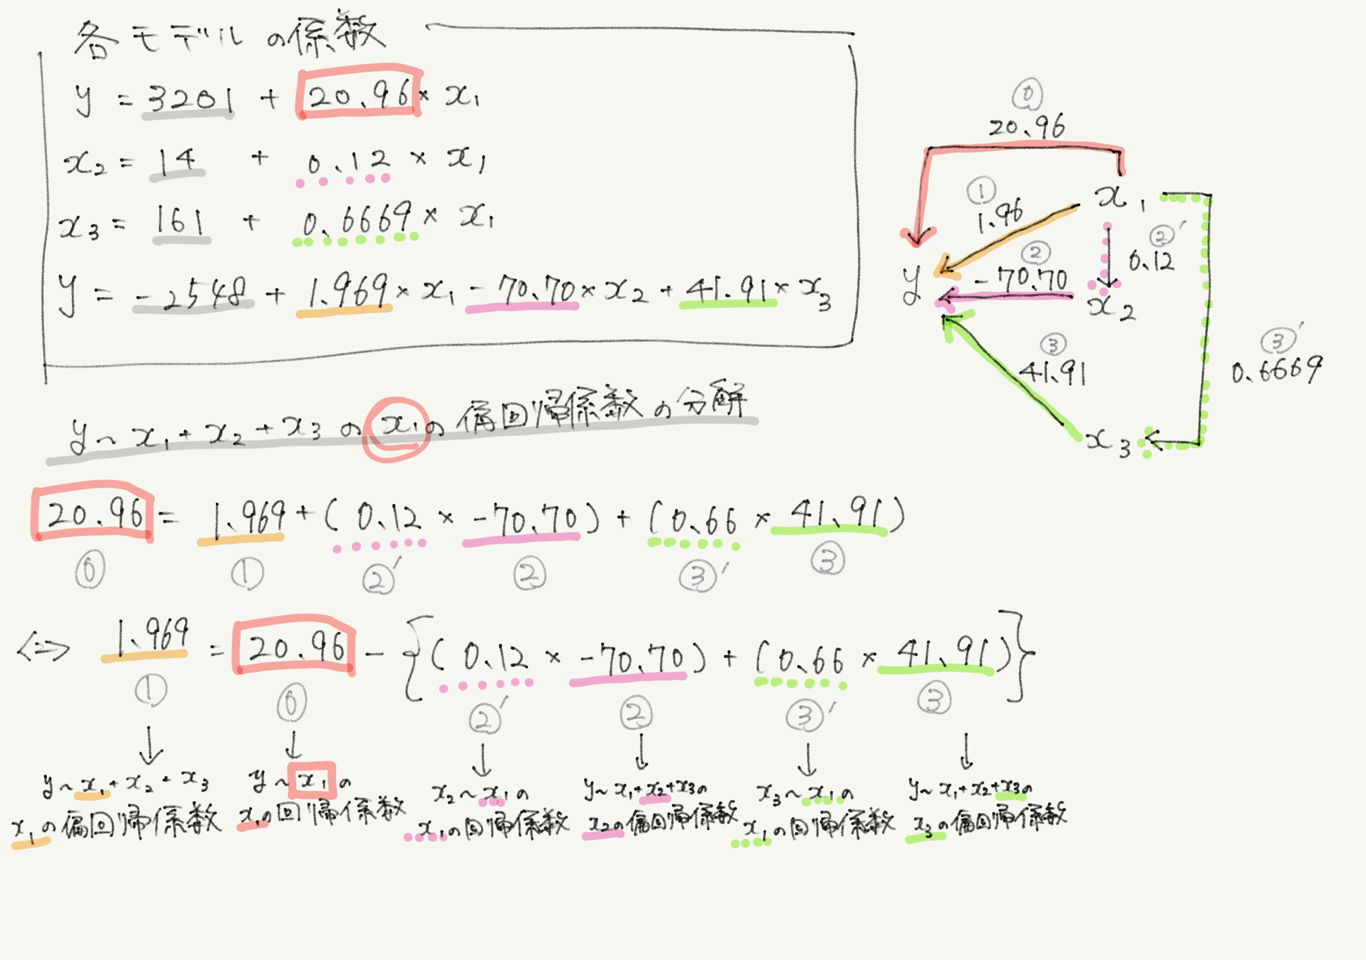 各モデルの係数
y = 3201 + 20.96 × x₁
x₂ = 14 + 0.12 × x₁
x₃ = 161 + 0.6669 × x₁
y = -2548 + 1.969 × x₁ - 70.70 × x₂ + 41.91 × x₃
⓪
20.96
①
1.96
x₁
②
-70.70
②′
0.12
y
x₂
③
41.91
③′
0.6669
x₃
y ~ x₁ + x₂ + x₃ の x₁ の 偏回帰係数の分解
20.96 = 1.969 + ( 0.12 × -70.70 ) + ( 0.66 × 41.91 )
⓪ ① ②′ ② ③′ ③
<=> 1.969 = 20.96 - { ( 0.12 × -70.70 ) + ( 0.66 × 41.91 ) }
① ⓪ ②′ ② ③′ ③
y ~ x₁ + x₂ + x₃
x₁ の偏回帰係数
y ~ x₁ の
x₁の回帰係数
x₂ ~ x₁ の
x₁の回帰係数
y ~ x₁+x₂+x₃の
x₂の偏回帰係数
x₃ ~ x₁の
x₁の回帰係数
y ~ x₁+x₂+x₃の
x₃の偏回帰係数